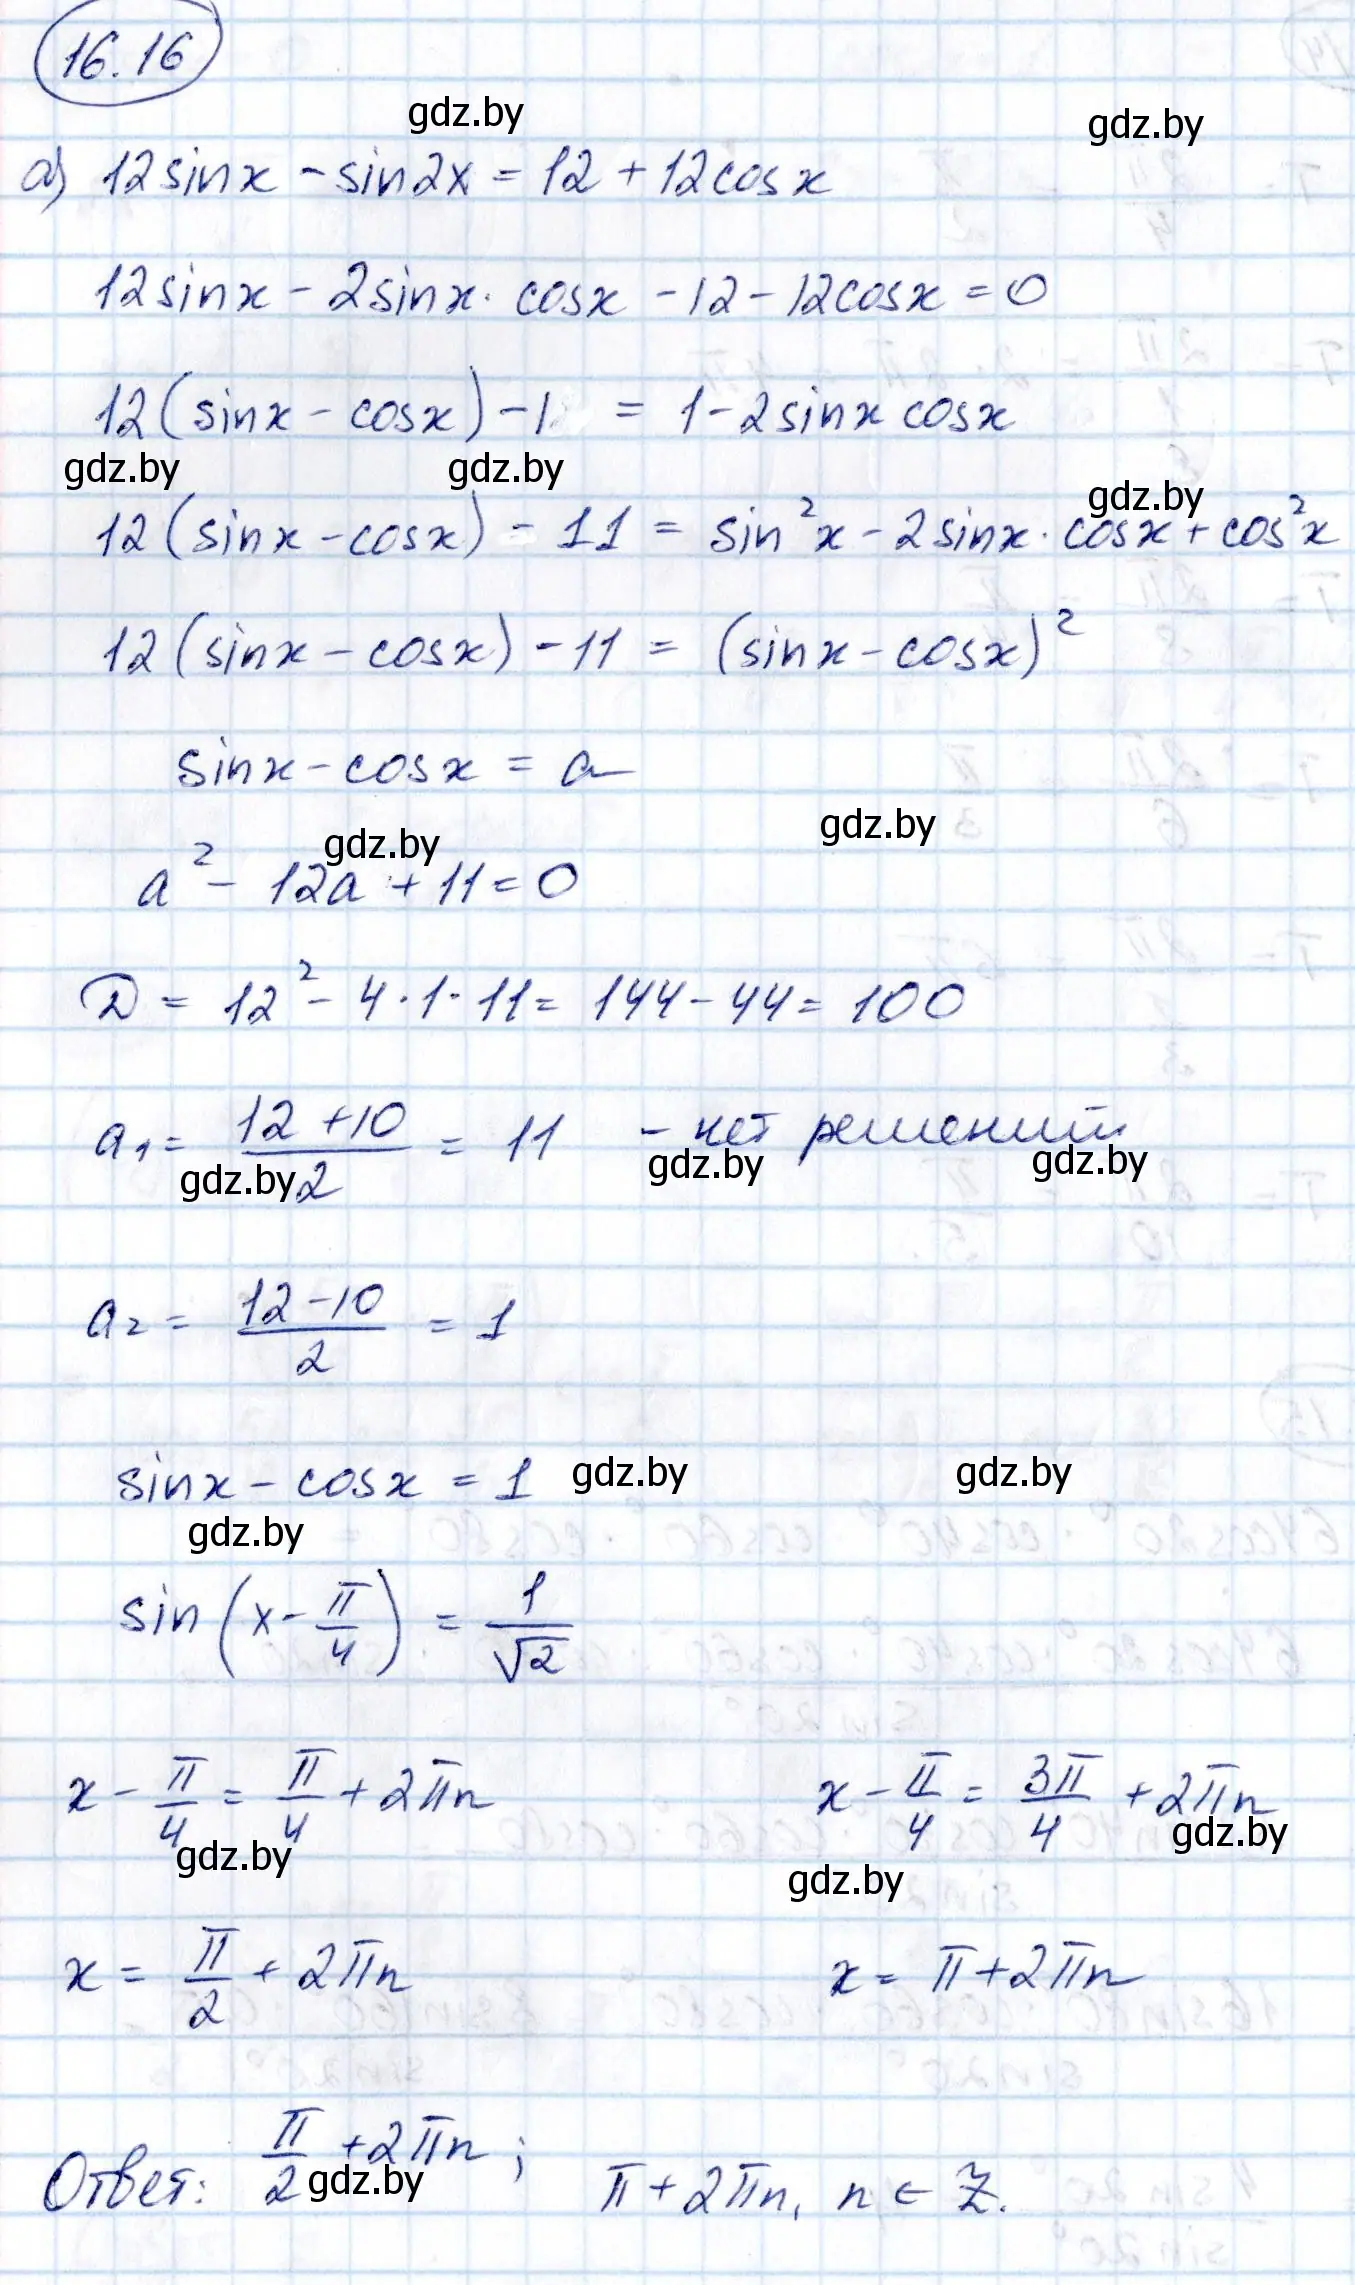 16.16
gdz.by
gdz.by
а) 12sinx - sin2x = 12 + 12cosx
12sinx - 2sinx · cosx - 12 - 12cosx = 0
12(sinx - cosx) - 1 = 1 - 2sinx cosx
gdz.by
gdz.by
gdz.by
12(sinx - cosx) - 11 = sin²x - 2sinx · cosx + cos²x
12(sinx - cosx) - 11 = (sinx - cosx)²
sinx - cosx = a
gdz.by
gdz.by
a² - 12a + 11 = 0
D = 12² - 4 · 1 · 11 = 144 - 44 = 100
a₁ = (12 + 10)/2 = 11 - нет решений
gdz.by
gdz.by
gdz.by
a₂ = (12 - 10)/2 = 1
sinx - cosx = 1
gdz.by
gdz.by
gdz.by
sin(x - π/4) = 1/√2
x - π/4 = π/4 + 2πn
x - π/4 = 3π/4 + 2πn
gdz.by
gdz.by
gdz.by
x = π/2 + 2πn
x = π + 2πn
Ответ: π/2 + 2πn; π + 2πn, n ∈ Z.
gdz.by